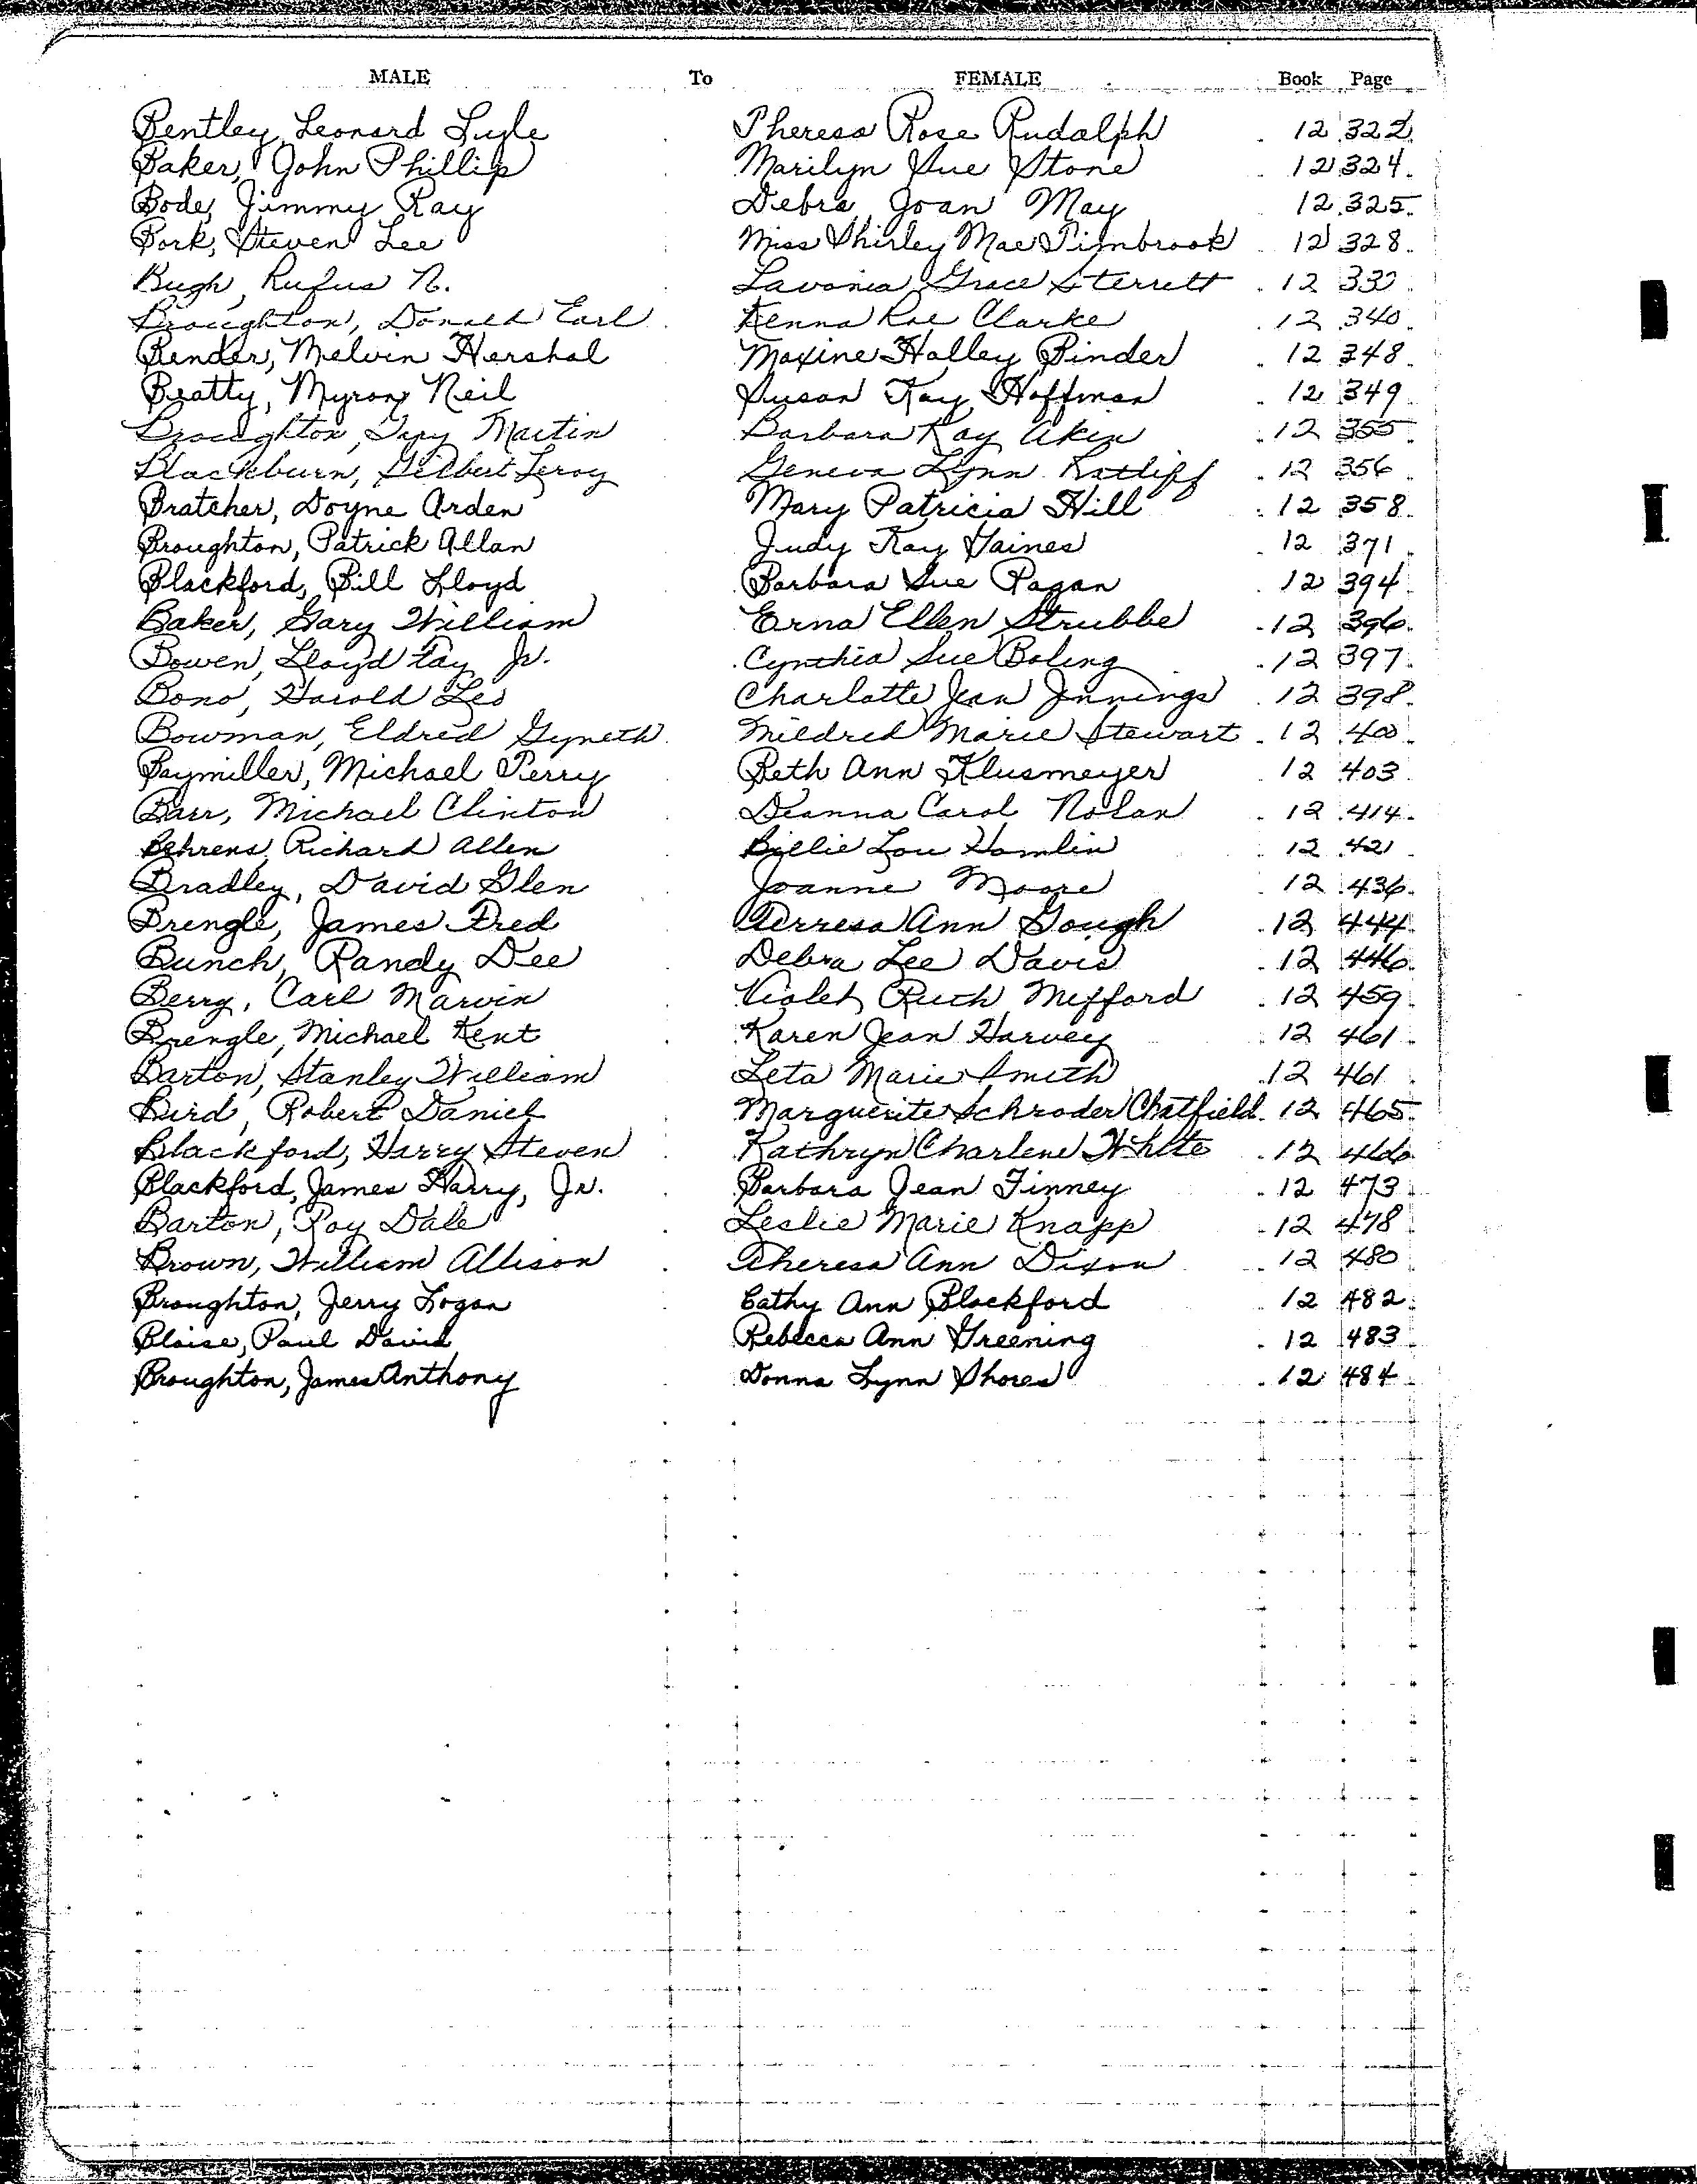 MALE To FEMALE Book Page
Bentley, Leonard Lyle Theresa Rose Rudolph 12 322
Baker, John Phillip Marilyn Sue Stone 12 324
Bode, Jimmy Ray Debra Joan May 12 325
Bork, Steven Lee Miss Shirley Mae Timbrook 12 328
Bugh, Rufus N. Lavonia Grace Sterrett 12
Broughton, Donald Earl Kenna Rae Clarke 12 340
Bender, Melvin Hershal Maxine Halley Binder 12 348
Beatty, Myron Neil Susan Kay Hoffman 12 349
Broughton, Martin Barbara Kay Akin 12 355
Blackburn, Gilbert Leroy Geneva Lynn Ratliff 12 356
Bratcher, Doyne Arden Mary Patricia Hill 12 358
Broughton, Patrick Allan Judy Kay Gaines 12 371
Blackford, Bill Lloyd Barbara Sue Pagan 12 394
Baker, Gary William Erna Ellen Strubbe 12 396
Bowen, Lloyd Fay Jr. Cynthia Sue Boling 12 397
Bono, Harold Leo Charlotte Jean Jnnings 12 398
Bowman, Eldred Gyneth Mildred Marie Stewart 12 400
Baymiller, Michael Perry Beth Ann Klusmeyer 12 403
Barr, Michael Clinton Deanna Carol Nolan 12 414
Behrens, Richard Allen Billie Lou Hamlin 12 421
Bradley, David Glen Joanne Moore 12 436
Brengle, James Fred Terresa Ann Gough 12 444
Bunch, Randy Dee Debra Lee Davis 12 446
Berry, Carl Marvin Violet Ruth Mefford 12 459
Brengle, Michael Kent Karen Jean Harvey 12 461
Barton, Stanley William Leta Marie Smith 12 461
Bird, Robert Daniel Marguerite Schroder Chatfield 12 465
Blackford, Harry Steven Kathryn Charlene White 12 466
Blackford, James Harry, Jr. Barbara Jean Finney 12 473
Barton, Roy Dale Leslie Marie Knapp 12 478
Brown, William Allison Theresa Ann Dixon 12 480
Broughton, Jerry Logan Cathy Ann Blackford 12 482
Blaise, Paul David Rebecca Ann Greening 12 483
Broughton, James Anthony Donna Lynn Shores 12 484